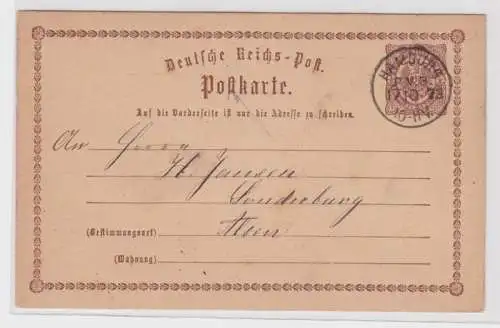 Deutsche Reichs-Post.
Postkarte.
HAMBURG
Auf die Vorderseite ist nur die Adresse zu schreiben.
An Herrn
H. Jansen
Sonderburg
(Bestimmungsort) Alsen
(Wohnung)